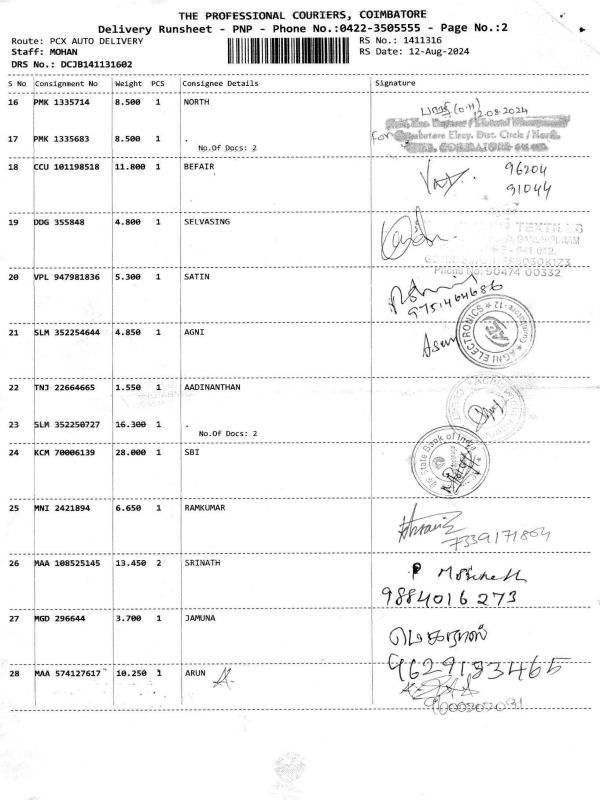 THE PROFESSIONAL COURIERS, COIMBATORE
Delivery Runsheet - PNP - Phone No.:0422-3505555 - Page No.:2
Route: PCX AUTO DELIVERY RS No.: 1411316
Staff: MOHAN RS Date: 12-Aug-2024
DRS No.: DCJB141131602
S No Consignment No Weight PCS Consignee Details Signature
16 PMK 1335714 8.500 1 NORTH
12.08.2024
17 PMK 1335683 8.500 1 .
For Coimbatore Elecy. Dist. Circle / North
No.Of Docs: 2
18 CCU 101198518 11.800 1 BEFAIR
96204
91044
19 DDG 355848 4.800 1 SELVASING
TEXTILLS
Phone No: 90474 00332
20 VPL 947981836 5.300 1 SATIN
9751464686
21 SLM 352254644 4.850 1 AGNI
AGNI ELECTRONICS * Coimbatore-12 *
22 TNJ 22664665 1.550 1 AADINANTHAN
23 SLM 352250727 16.300 1 .
No.Of Docs: 2
24 KCM 70006139 28.000 1 SBI
State Bank of India
25 MNI 2421894 6.650 1 RAMKUMAR
7339171864
26 MAA 108525145 13.450 2 SRINATH
9884016273
27 MGD 296644 3.700 1 JAMUNA
9629183465
28 MAA 574127617 10.250 1 ARUN